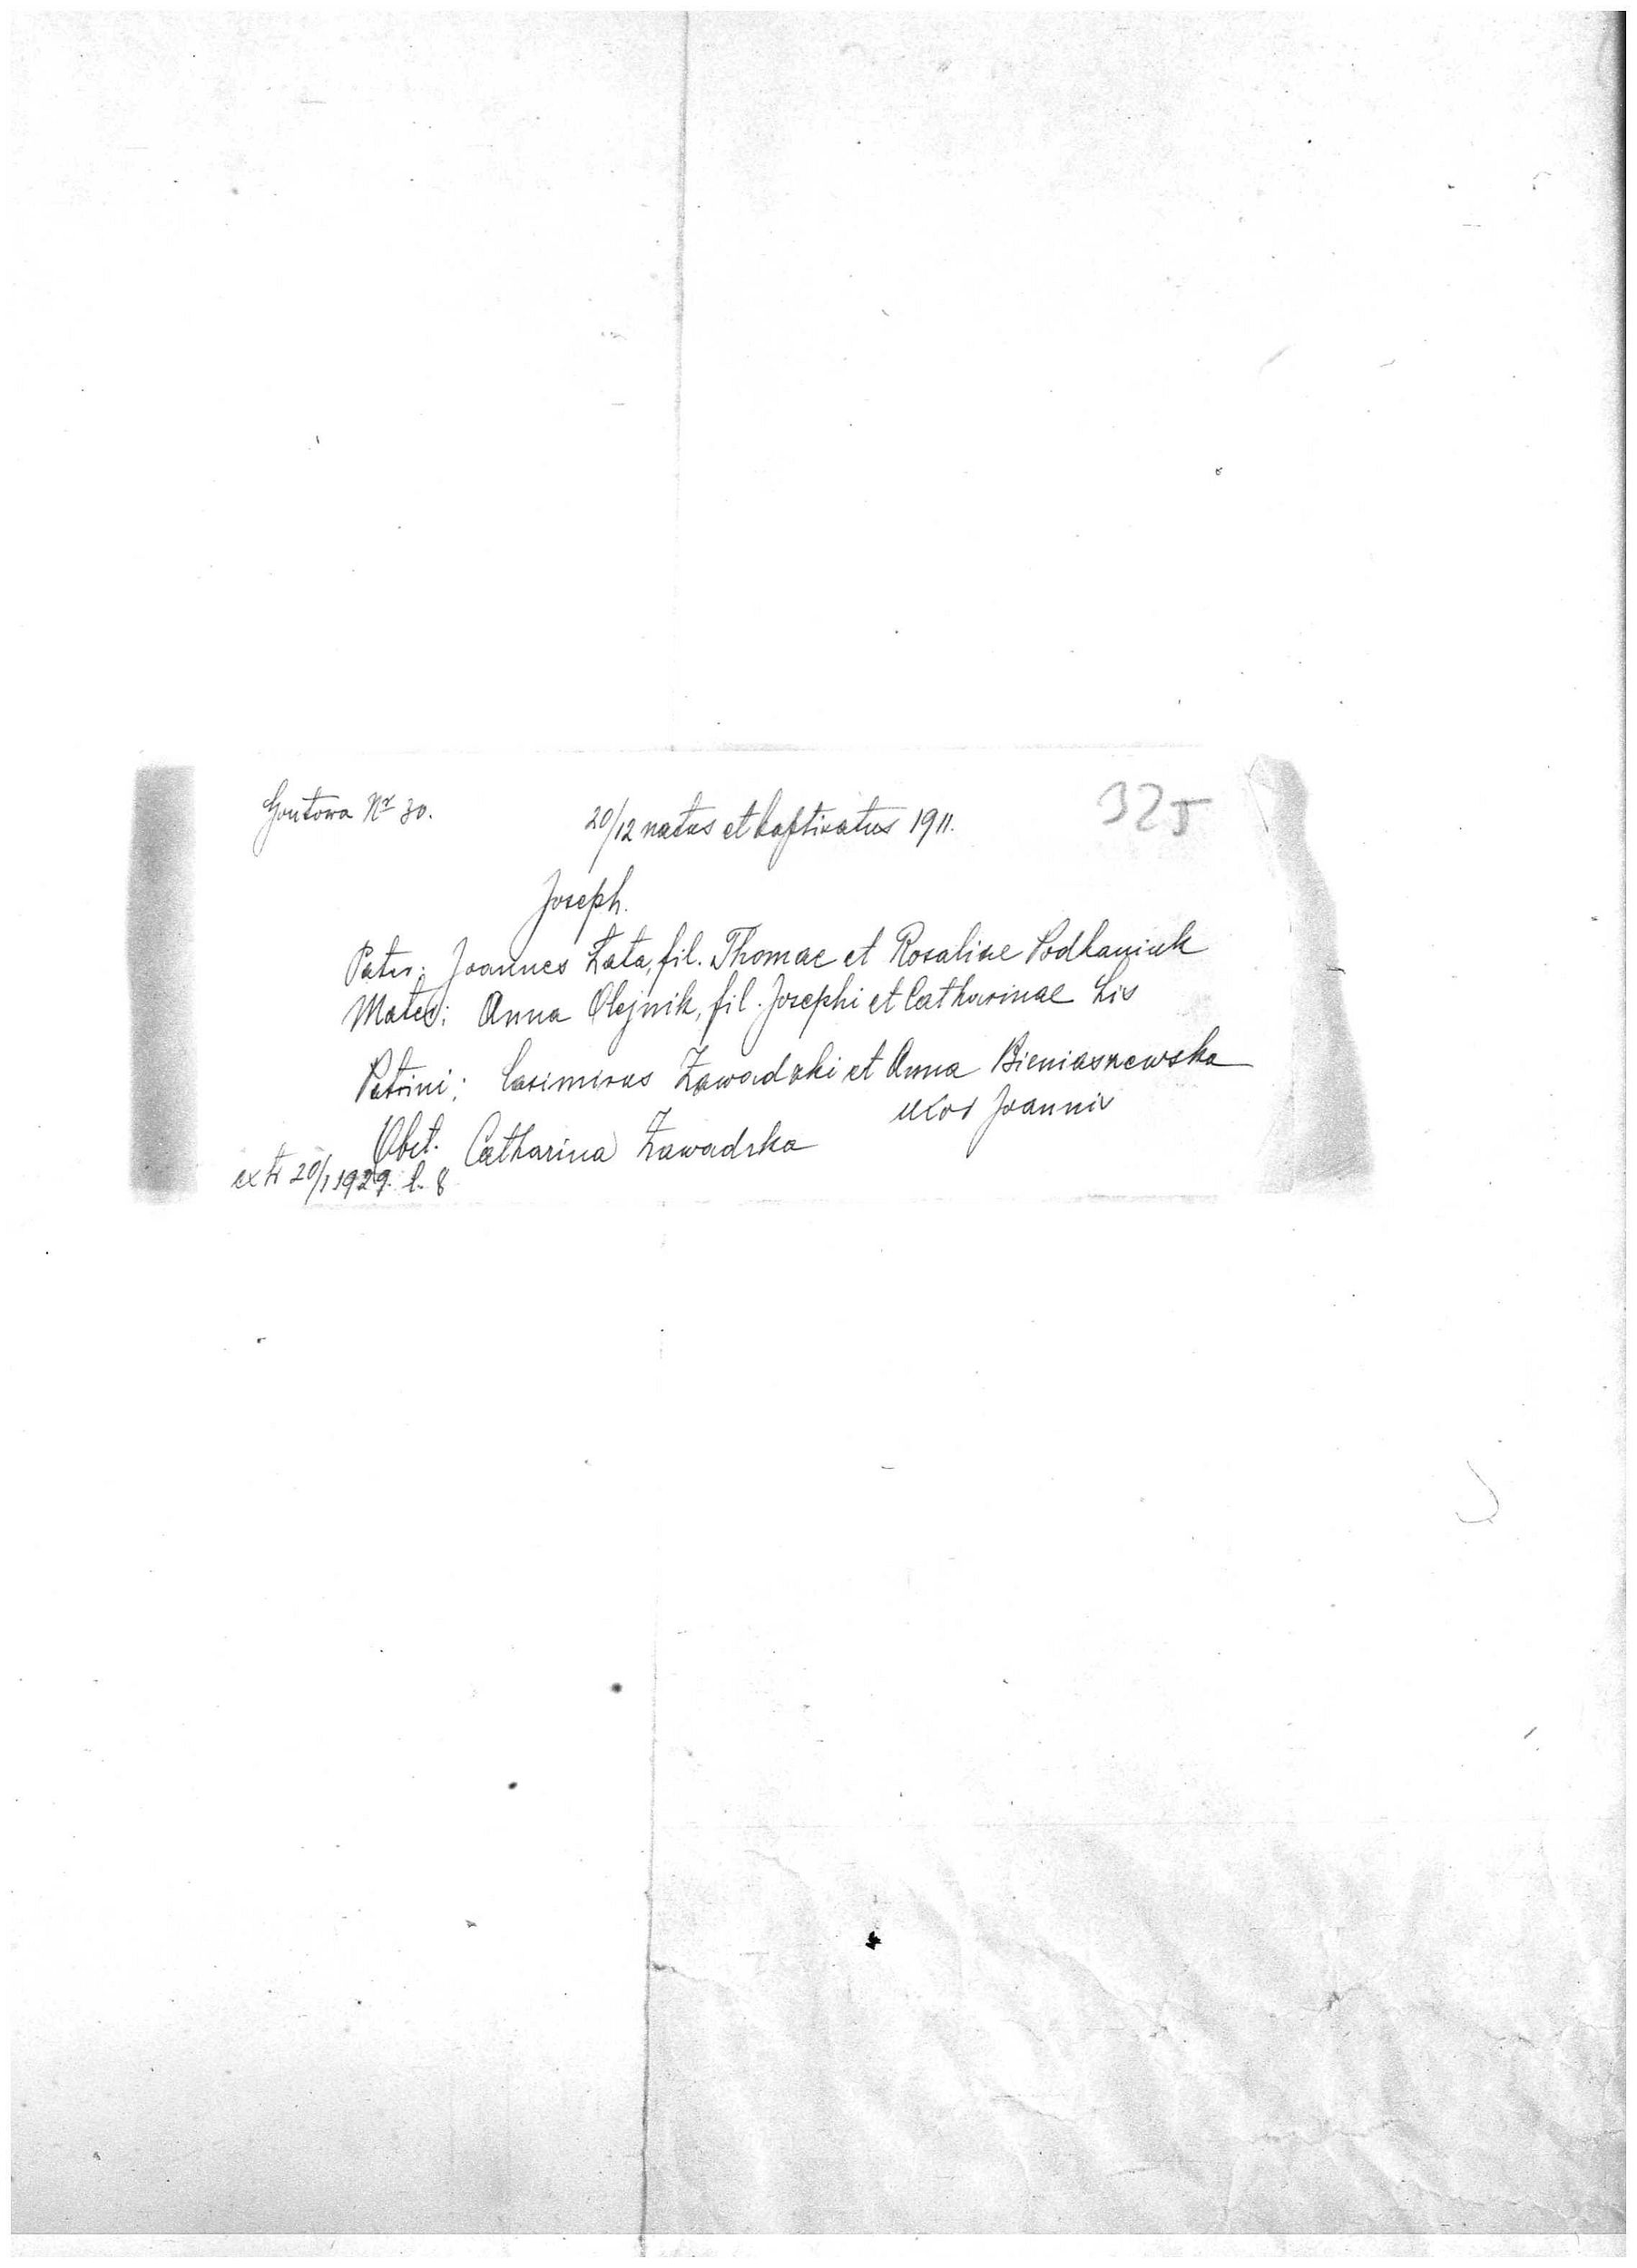 Goutowa Nr 30.
20/12 natus et baptizatus 1911.
325
Joseph.
Pater: Joannes Łata, fil. Thomae et Rosaliae Podhaniuk
Mater: Anna Olejnik, fil. Josephi et Catharinae Lis
Patrini: Casimirus Zawadzki et Anna Bieniaszewska
uxor Joannis
Obst. Catharina Zawadzka
extr 20/1 1929. l. 8